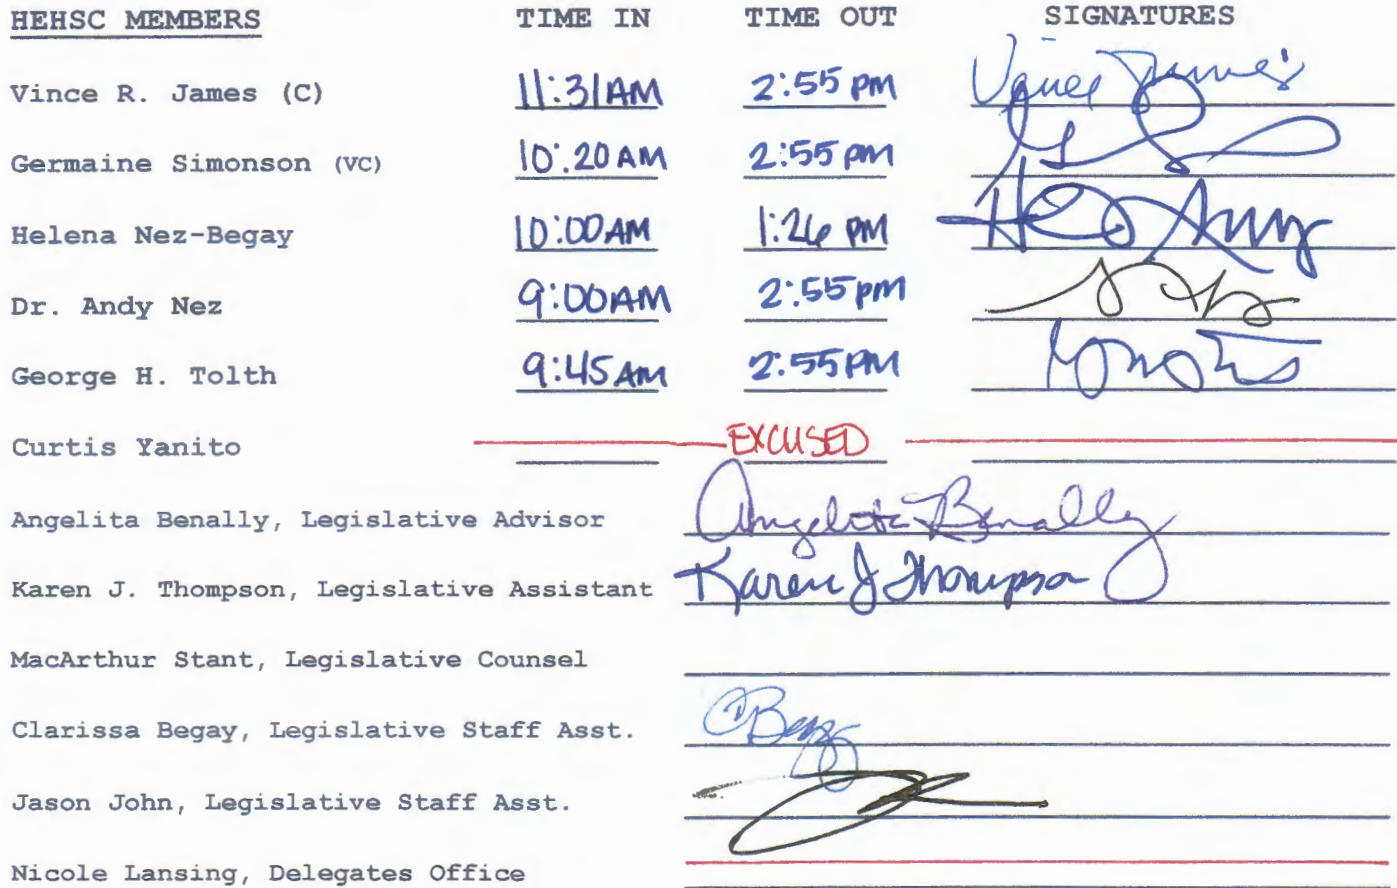 HEHSC MEMBERS TIME IN TIME OUT SIGNATURES
Vince R. James (C) 11:31AM 2:55 PM Vince James
Germaine Simonson (VC) 10:20AM 2:55 PM
Helena Nez-Begay 10:00AM 1:26 PM
Dr. Andy Nez 9:00AM 2:55 PM
George H. Tolth 9:45AM 2:55PM
Curtis Yanito EXCUSED
Angelita Benally, Legislative Advisor Angelita Benally
Karen J. Thompson, Legislative Assistant Karen J Thompson
MacArthur Stant, Legislative Counsel
Clarissa Begay, Legislative Staff Asst. CBegay
Jason John, Legislative Staff Asst.
Nicole Lansing, Delegates Office